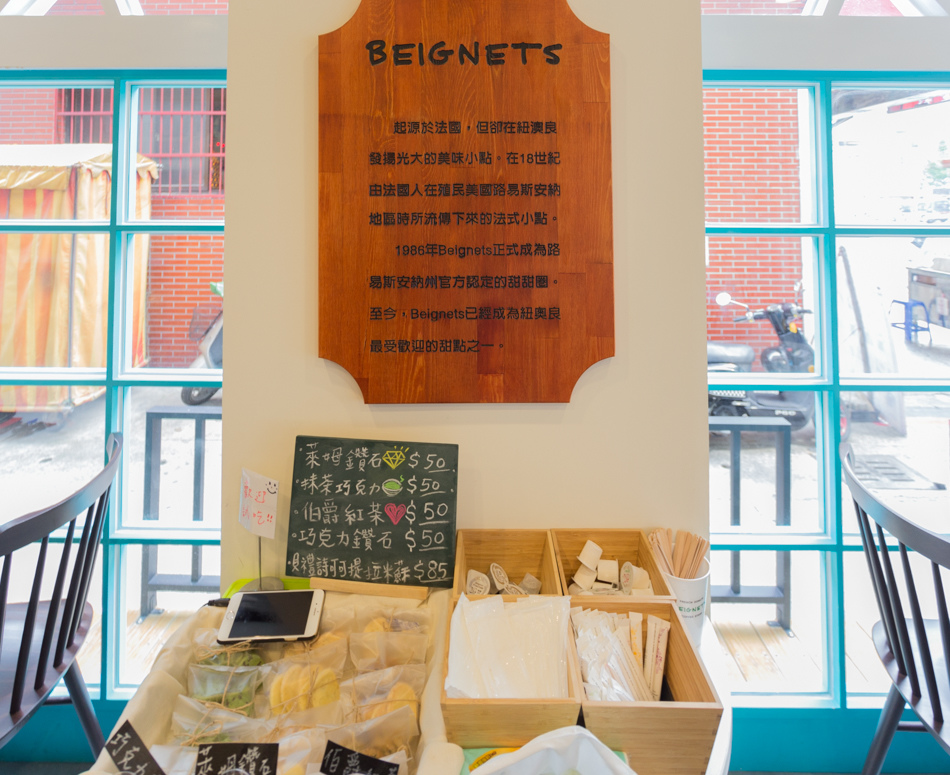 BEIGNETS
起源於法國,但卻在紐澳良
發揚光大的美味小點。在18世紀
由法國人在殖民美國路易斯安納
地區時所流傳下來的法式小點。
1986年Beignets正式成為路
易斯安納州官方認定的甜甜圈。
至今,Beignets已經成為紐奧良
最受歡迎的甜點之一。
·萊姆鑽石 $50
·抹茶巧克力 $50
·伯爵紅茶 $50
·巧克力鑽石 $50
·貝禮詩可可提拉米蘇 $85
歡迎
試吃!!
BEIGNETS
巧克力
萊姆鑽石
伯爵